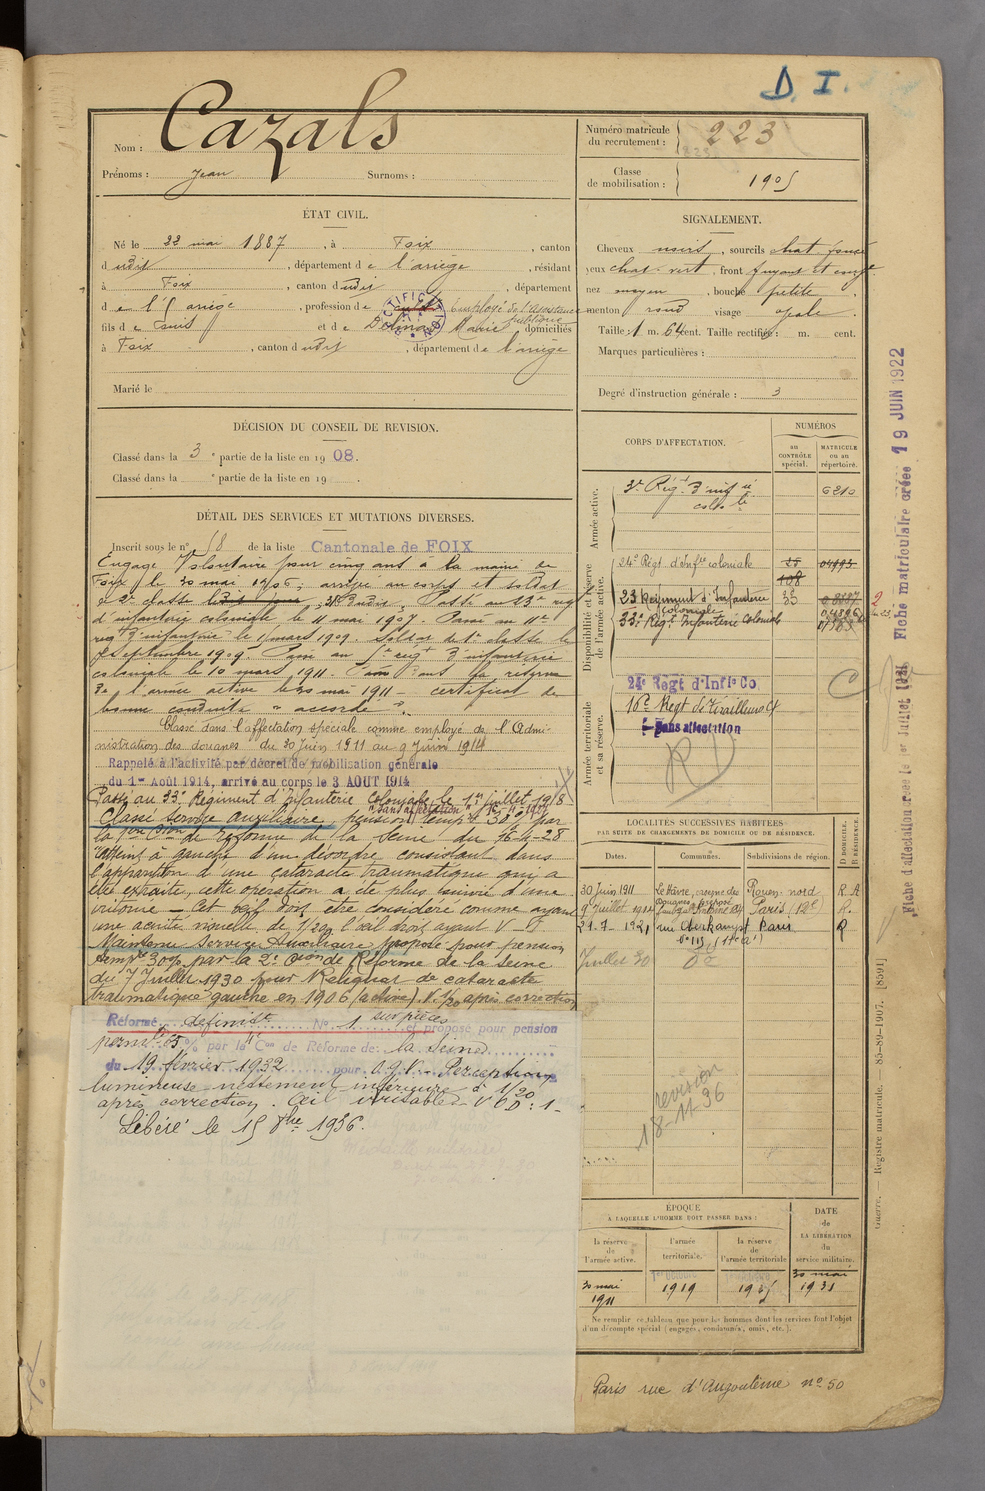 D. I.
Nom : Cazals
Prénoms : Jean Surnoms :
Numéro matricule du recrutement : 223
Classe de mobilisation : 1905
ÉTAT CIVIL.
Né le 22 mai 1887, à Foix, canton
dudit, département de l'ariège, résidant
à Foix, canton dudit, département
de l'Ariège, profession de Employé de l'Assistance publique
fils de et de Marie domiciliés
à Foix, canton dudit, département de l'ariège
Marié le
SIGNALEMENT.
Cheveux noirs, sourcils chat. foncé
yeux chat. vert, front fuyant et
nez moyen, bouche petite
menton rond visage ovale.
Taille : 1 m. 64 cent. Taille rectifiée : m. cent.
Marques particulières :
Degré d'instruction générale : 3
DÉCISION DU CONSEIL DE REVISION.
Classé dans la 3e partie de la liste en 1908.
Classé dans la e partie de la liste en 19 .
DÉTAIL DES SERVICES ET MUTATIONS DIVERSES.
Inscrit sous le n° 58 de la liste Cantonale de FOIX
Engagé Volontaire pour cinq ans à la mairie de
Foix, le 30 mai 1906; arrivé au corps et soldat
de 2e classe ledit jour, Passé au 23e rég
d'infanterie coloniale le 11 mai 1907. Passé au 11e
régt d'infanterie le 11 mars 1909. Soldat de 1e classe le
septembre 1909. Passé au régt d'infanterie
coloniale le 10 mars 1911. Passé dans la réserve
de l'armée active le 30 mai 1911 - certificat de
bonne conduite "accordé".
Classé dans l'affectation spéciale comme employé de l'Admi-
nistration des douanes du 30 Juin 1911 au 9 Juin 1914
Rappelé à l'activité par décret de mobilisation générale
du 1er Août 1914, arrivé au corps le 3 AOUT 1914
Passé au 33e Régiment d'Infanterie Coloniale le 1er juillet 1918
"Sans affectation"
Classé service auxiliaire, pension temp. 30% par
la 1ère Cion de réforme de la Seine du 16-4-28
"atteint à gauche d'un désordre consistant dans
l'apparition d'une cataracte traumatique qui a
été extraite, cette opération a été plus suivie d'une
iritomie - Cet œil doit être considéré comme ayant
une acuité nouvelle de 1/20 l'œil droit ayant V = 1
Maintenu Service Auxiliaire proposé pour pension
temp. 30% par la 2e Cion de Réforme de la Seine
du 7 Juillet 1930 pour Reliquat de cataracte
traumatique gauche en 1906 (active). V. 1/20 après correction
Réformé définitt N° 1 sur pièces et proposé pour pension
permte 65% par la Con de Réforme de la Seine
du 19 février 1932 pour O.G. - Perception
lumineuse nettement inférieure à 1/20
après correction. V O D : 1 -
Libéré le 15 8bre 1936.
CORPS D'AFFECTATION.
NUMÉROS
au CONTRÔLE spécial.
MATRICULE ou au répertoire.
Armée active.
3e Régt d'inf ie cole
6210
Disponibilité et réserve de l'armée active.
24e Régt d'Infie coloniale 25 04993
108
23 Régiment d'Infanterie coloniale 33
33e Régt Infanterie Coloniale
Armée territoriale et sa réserve.
24e Régt d'Infie Co
16e Régt de Tirailleurs
Sans affectation
RD
C
LOCALITÉS SUCCESSIVES HABITÉES
PAR SUITE DE CHANGEMENTS DE DOMICILE OU DE RÉSIDENCE.
Dates. Communes. Subdivisions de région. D. DOMICILE. R. RÉSIDENCE.
30 Juin 1911 Le Hâvre, caserne des Douanes Rouen-nord R A
9 Juillet 1912 préposé Paris (12e) R.
21.9.1921 rue Oberkampf Paris R
n° 113 (11e a')
Juillet 30
revision
18-11-36
ÉPOQUE
À LAQUELLE L'HOMME DOIT PASSER DANS :
la réserve de l'armée active. l'armée territoriale. la réserve de l'armée territoriale
DATE de LA LIBÉRATION du service militaire.
30 mai 1911 1er octobre 1919 30 mai 1931
Ne remplir ce tableau que pour les hommes dont les services font l'objet
d'un décompte spécial (engagés, condamnés, omis, etc.).
Paris rue d'Angoulême n° 50
Fiche matriculaire créée 19 JUIN 1922
Fiche d'affectation créée le 1er Juillet 1921
Guerre. — Registre matricule. — 85-89-1907. [8591]